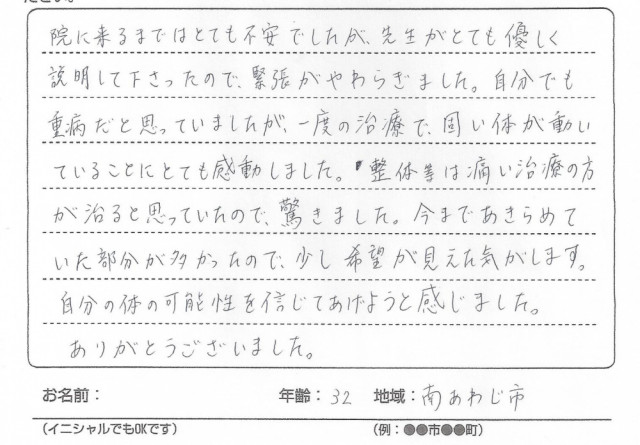 院に来るまではとても不安でしたが、先生がとても優しく
説明して下さったので、緊張がやわらぎました。自分でも
重病だと思っていましたが、一度の治療で、固い体が動い
ていることにとても感動しました。整体等は痛い治療の方
が治ると思っていたので、驚きました。今まであきらめて
いた部分が多かったので、少し希望が見えた気がします。
自分の体の可能性を信じてあげようと感じました。
ありがとうございました。
お名前： 年齢：32 地域：南あわじ市
(イニシャルでもOKです) (例：●●市●●町)